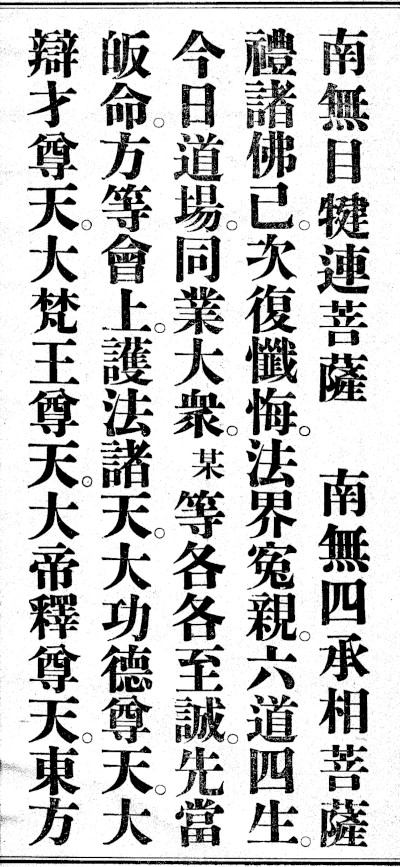 南無日犍連菩薩　南無四承相菩薩
禮諸佛已。次復懺悔。法界寃親。六道四生。
今日道場。同業大衆。某等各各至誠。先當
皈命。方等會上。護法諸天。大功德尊天。大
辯才尊天。大梵王尊天。大帝釋尊天。東方